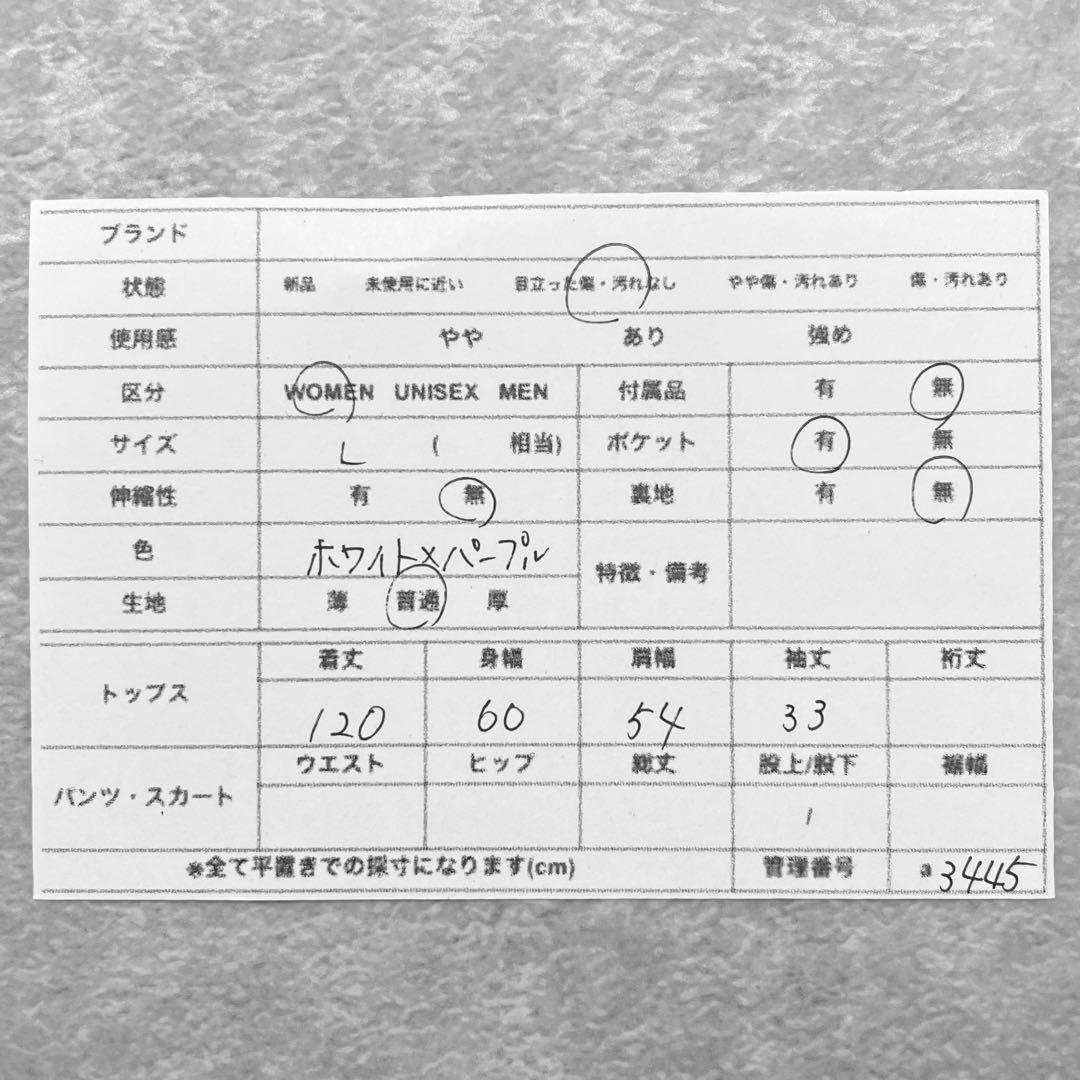 ブランド
状態 新品 未使用に近い 目立った傷・汚れなし やや傷・汚れあり 傷・汚れあり
使用感 やや あり 強め
区分 WOMEN UNISEX MEN 付属品 有 無
サイズ L ( 相当) ポケット 有 無
伸縮性 有 無 裏地 有 無
色 ホワイト×パープル 特徴・備考
生地 薄 普通 厚
トップス 着丈 身幅 肩幅 袖丈 裄丈
120 60 54 33
パンツ・スカート ウエスト ヒップ 総丈 股上/股下 裾幅
/
※全て平置きでの採寸になります(cm) 管理番号 a 3445